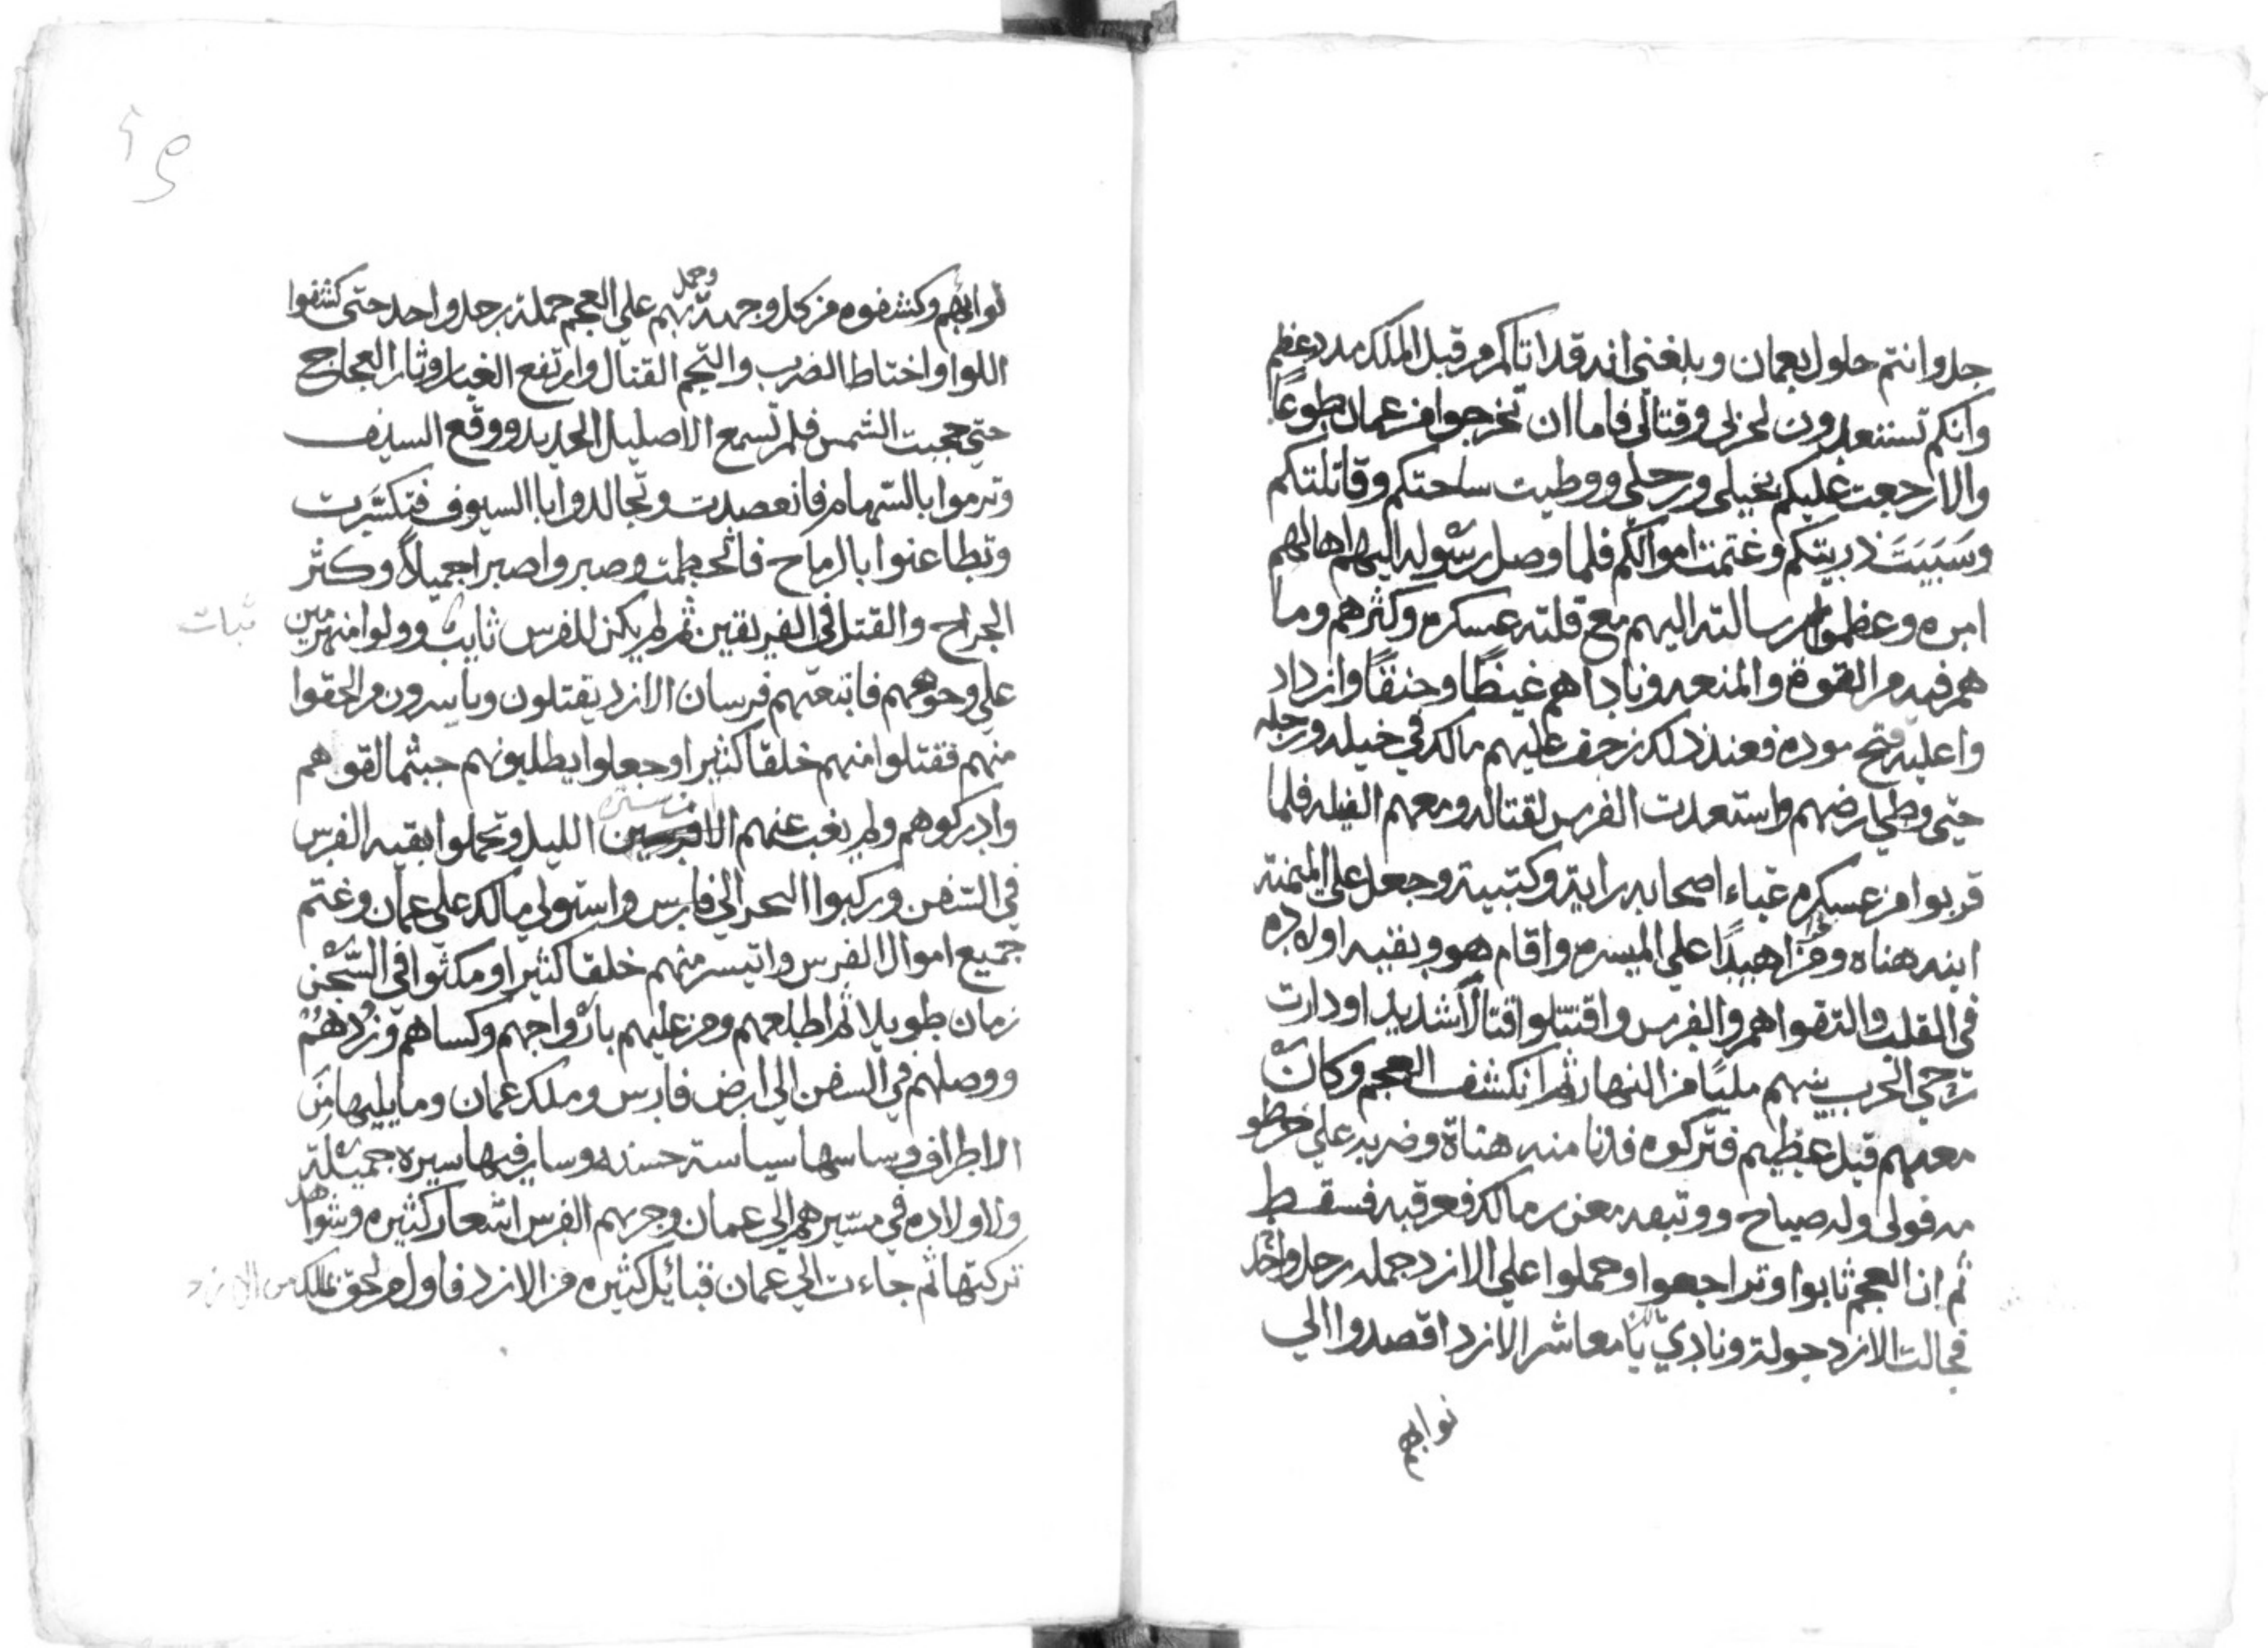 جل وانتم حلول بعمان وبلغني انه قد اتاكم من قبل الملك مدد عظيم
وانكم تستعدون لحربي وقتالي فاما ان تخرجوا من عمان طوعًا
والا رجعت عليكم بخيلي ورجلي ووطيت ساحتكم وقاتلتكم
وسَبَيتَ ذريتكم وغتمت اموالكم فلما وصل رسوله اليهم اهالهم
امره وعظموا رسالته اليهم مع قلته عسكره وكثرهم وما
هم فيه من القوة والمنعه وزاداهم غيظًا وحنقًا وازداد
وا عليه فعند ذلك زحف عليهم مالك في خيله ورجله
حتى وطي ارضهم واستعدت الفرس لقتاله ومعهم الفيله فلما
قربوا من عسكره عباء اصحابه راية وكتيبة وجعل على الميمنة
ابنه هناه وفراهيدًا على الميسره واقام هو وبقيه اولاده
في القلب والتقوا هم والفرس واقتتلوا قتالًا شديدا ودارت
رحي الحرب بينهم مليًا من النهار ثم انكشف العجم وكان
معهم فيل عظيم فتركوه فدنا منه هناة وضربه على خرطو
مه فولى وله صياح ووتبعه معن بن مالك فعرقبه فسقط
ثم ان العجم ثابوا وتراجعوا وحملوا على الازد حمله رجل واحد
فجالت الازد جولة ونادي يا معاشر الازد اقصدوا الي
نوابهم
نوابهم وكشفوه من كل وجهة وحمل بهم على العجم حملة رجل واحد حتى كشفوا
اللوا واختاط الضرب والتجم القتال وارتفع الغبار وثار العجاج
حتى حجبت الشمس فلم تسمع الا صليل الحديد ووقع السيف
وترموا بالسهام فانعصدت وتجالدوا باالسيوف فتكسَّرت
وتطاعنوا بالرماح فانحطمت وصبروا صبرا جميلاً وكثر
الجراح والقتل في الفريقين ثم لم يكن للفرس ثابت وولوا منهزمين
ثبات
على وجوههم فاتبعتهم فرسان الازد يقتلون وياسرون من لحقوا
منهم فقتلوا منهم خلقا كثيرا وجعلوا يطلبونهم حيثما لقوهم
وادركوهم ولم يغب عنهم الا من ستره الليل وتحملوا بقيه الفرس
في السفن وركبوا البحر الي فارس واستولي مالك على عمان وغتم
جميع اموال الفرس واتيسر منهم خلقا كثيرا ومكثوا في السّجن
زمان طويلا ثم اطلعهم ومن عليهم بارواجهم وكساهم وزودهم
ووصلهم في السفن الى ارض فارس وملك عمان وما يليها من
الاطراف وساسها سياسة حسنه وسار فيها سيره جميلة
ولاولاده في مسيرهم الى عمان وحربهم الفرس اشعار كثيره وشواهد
تركتها ثم جاءت الى عمان قبائيل كثيره من الازد فاول من لحق بمالك من الازد